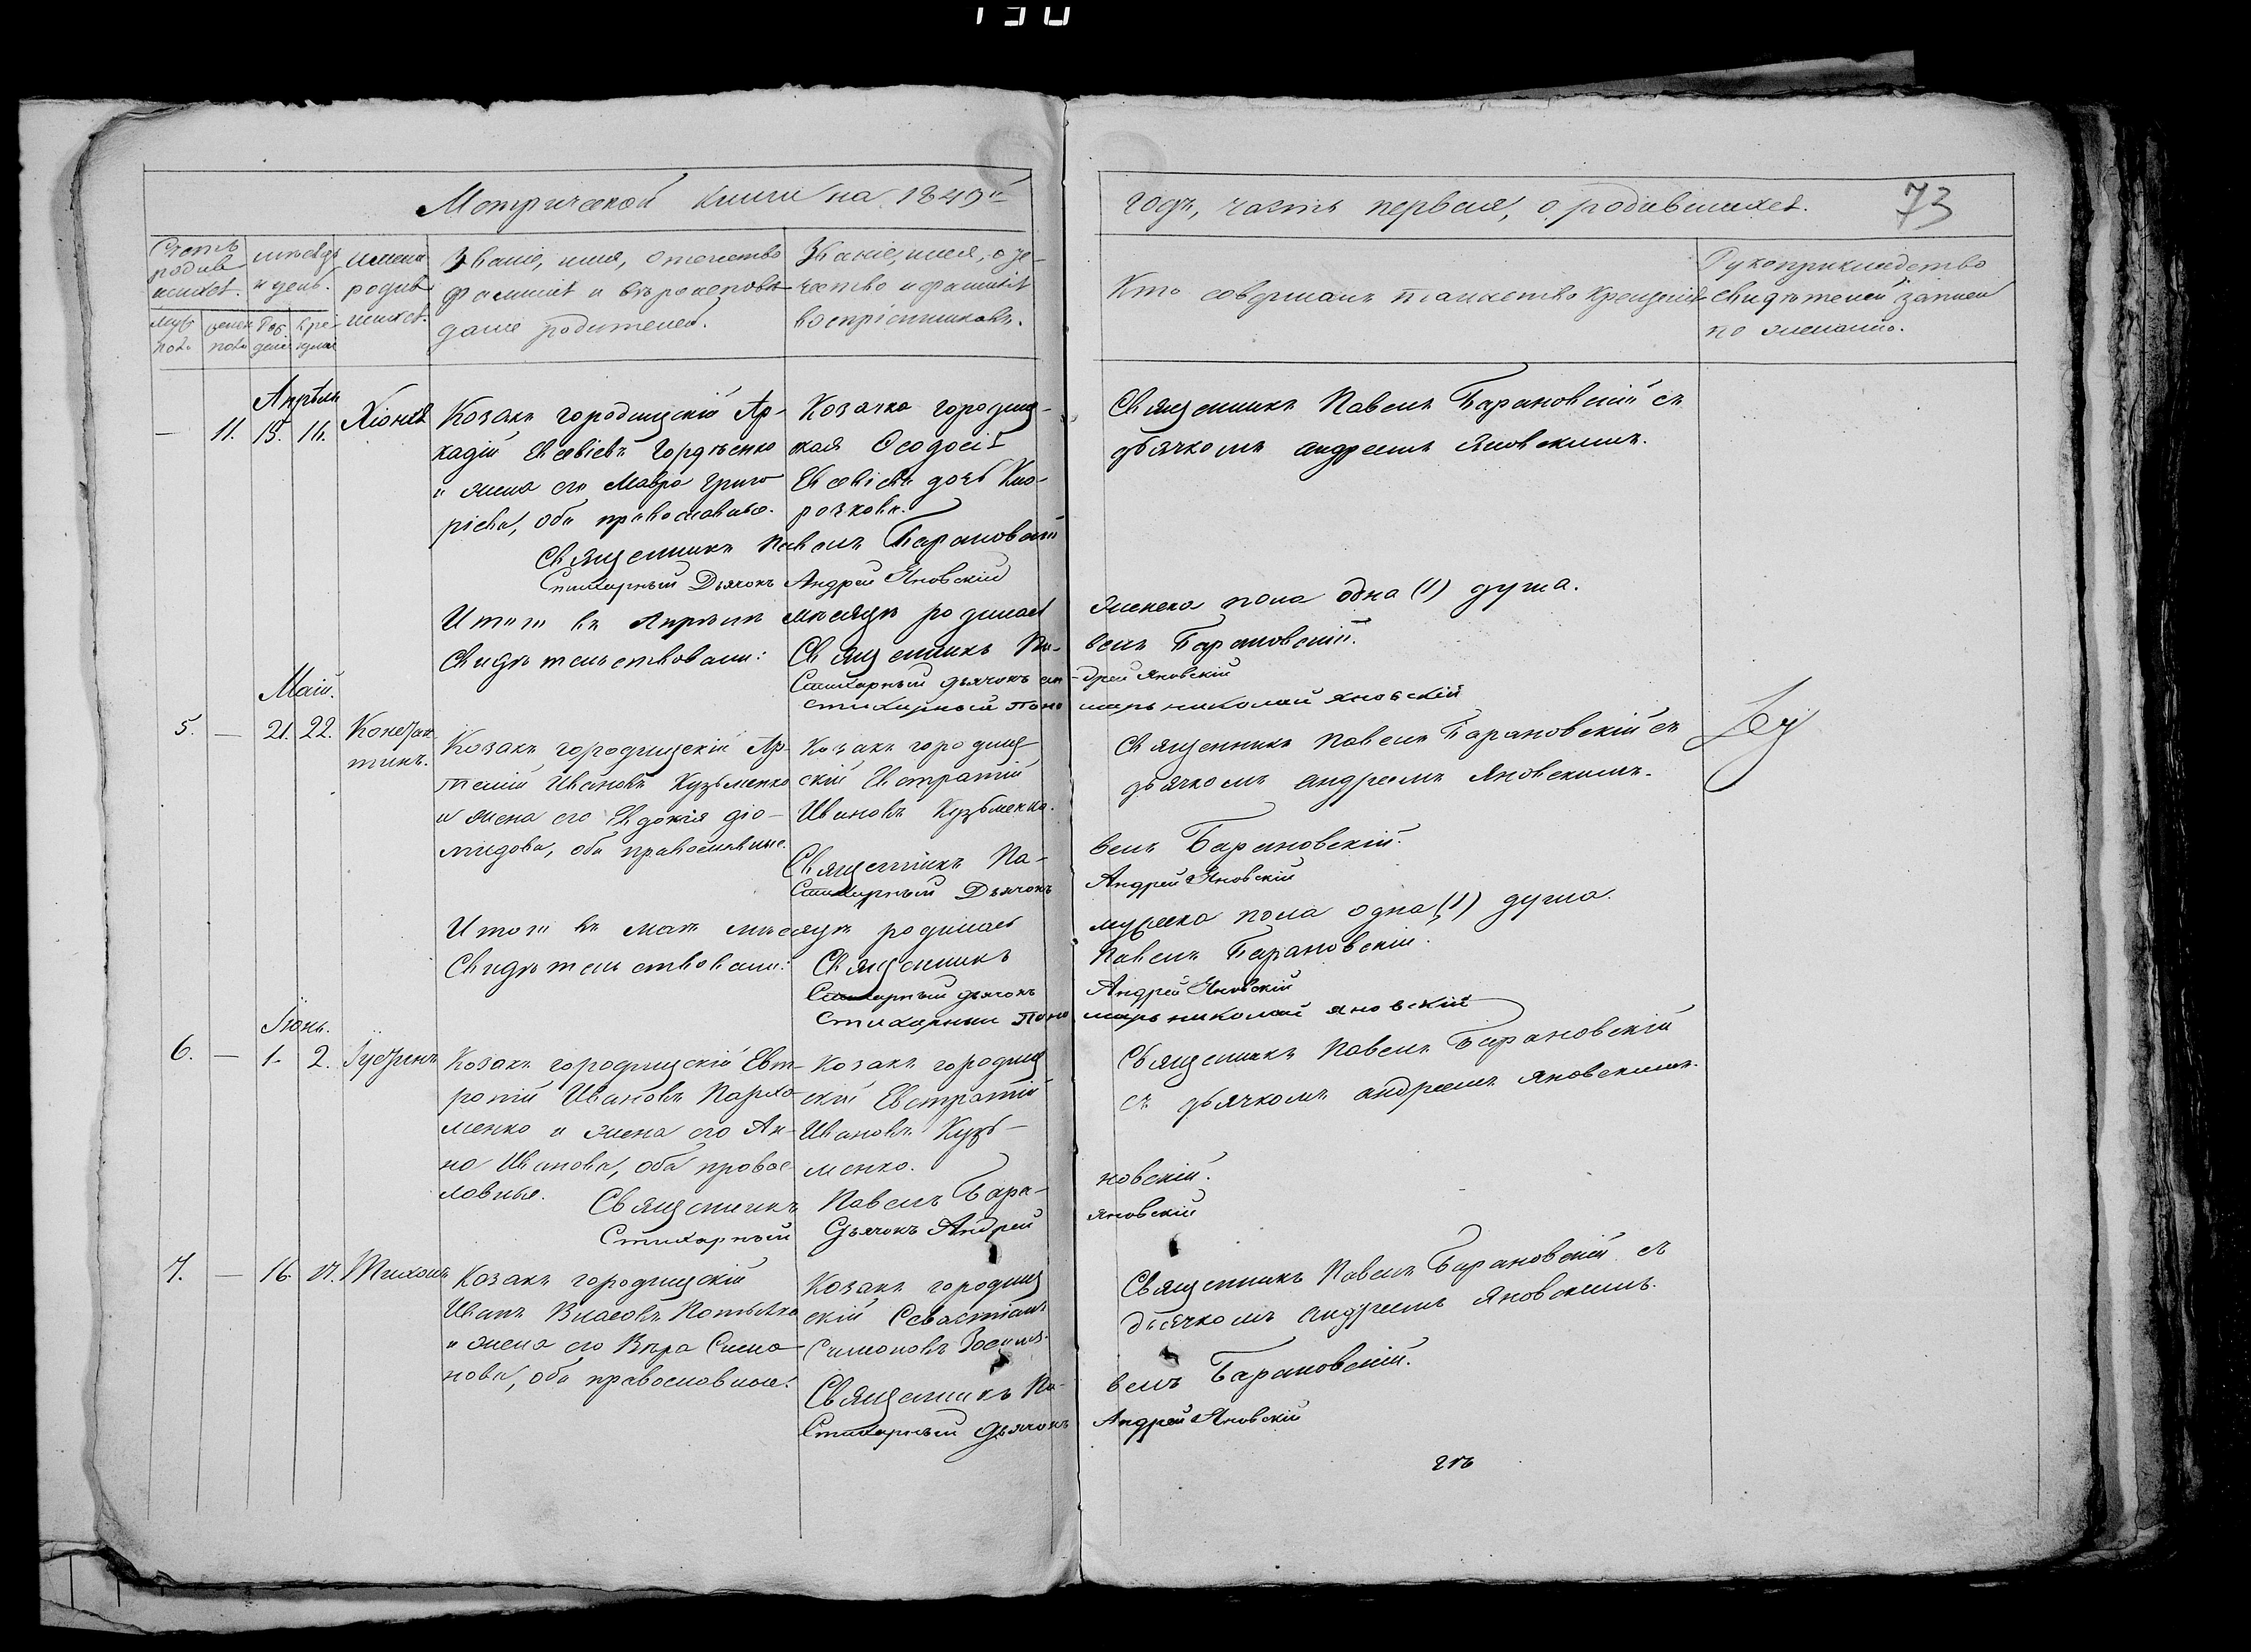 130
Метрической книги на 1849й
годъ, часть первая, о родившихся.
73
Счетъ родив шихся.
мѣсяцъ и день.
Имена родив шихся.
Званіе, имя, отечество
фамилія и вѣроисповѣ
даніе родителей.
Званіе, имя, оте-
чество и фамилія
воспріемниковъ.
Кто совершалъ таинство крещенія
Рукоприкладство
свидѣтелей записи
по желанію.
Муж пола
женск пола
Рож денія
Кре щенія
Апрѣль
— 11. 15. 16. Хіонія
Козакъ городищскій Ар-
кадій Евсевіевъ Гордѣенко
и жена его Мавра Григо
ріева, оба православные.
Козачка городищ-
ская Ѳеодосія
Евсевіева дочь Кло-
рочкова.
Священникъ Павелъ Барановскій съ
дьячкомъ Андреемъ Яновскимъ.
Священникъ Павелъ Барановскій
Стихарный Дьячокъ Андрей Яновскій
Итого въ Апрѣлѣ мѣсяцѣ родилась женска пола одна (1) душа.
Свидѣтельствовали: Священникъ Павелъ Барановскій.
Стихарный дьячокъ Андрей Яновскій
стихарный пономарь николай яновскій
Маій.
5. — 21. 22. Констан-
тинъ.
Козакъ городищскій Ар-
темій Ивановъ Кузьменко
и жена его Евдокія Діо-
мидова, оба православные.
Козакъ городищ-
скій Евстратій
Ивановъ Кузьменко.
Священникъ Павелъ Барановскій съ
дьячкомъ Андреемъ Яновскимъ.
Священникъ Па-
велъ Барановскій.
Стихарный Дьячокъ Андрей Яновскій
Итого въ Маѣ мѣсяцѣ родилась мужеска пола одна (1) душа.
Свидѣтельствовали: Священникъ Павелъ Барановскій.
Стихарный дьячокъ Андрей Яновскій
Стихарный пономарь николай яновскій
Іюнь.
6. — 1. 2. Іустинъ
Козакъ городищскій Евст-
ратій Ивановъ Пархо
менко и жена его Ан-
на Иванова, оба правос-
лавные.
Козакъ городищ
скій Евстратій
Ивановъ Кузь-
менко.
Священникъ Павелъ Барановскій
съ дьячкомъ Андреемъ Яновскимъ.
Священникъ Павелъ Бара-
новскій.
Стихарный Дьячокъ Андрей яновскій
7. — 16. 17. Тихонъ
Козакъ городищскій
Иванъ Власовъ
и жена его Вѣра Симо-
нова, оба православные.
Козакъ городищ
скій Севастіанъ
Симоновъ
Священникъ Павелъ Барановскій съ
дьячкомъ Андреемъ Яновскимъ.
Священникъ Па-
велъ Барановскій.
Стихарный Дьячокъ Андрей Яновскій